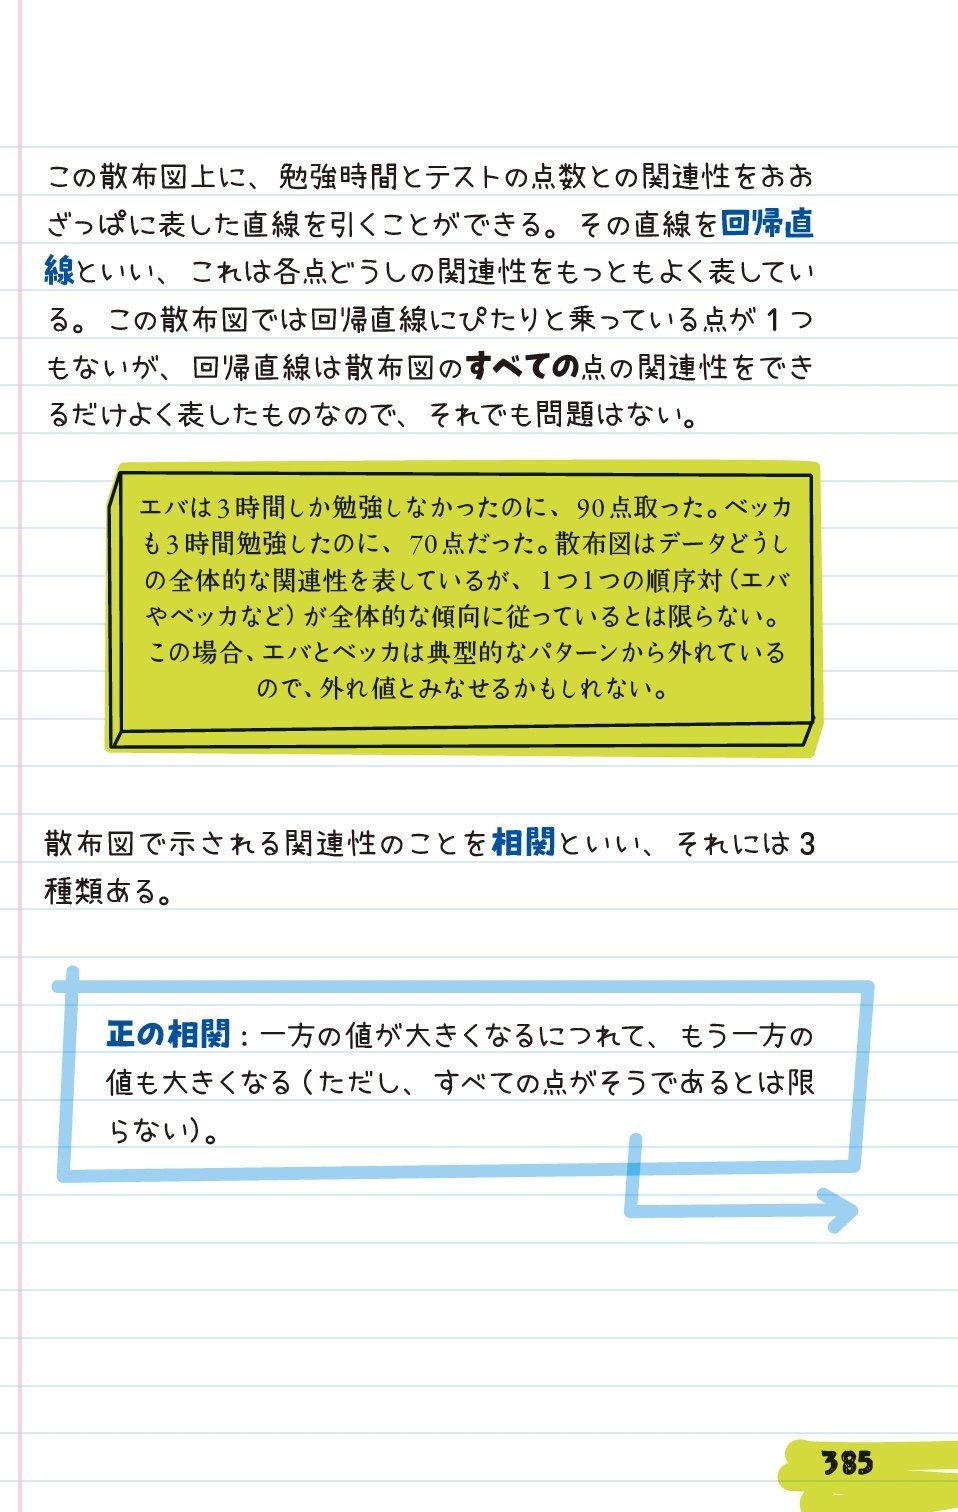 この散布図上に、勉強時間とテストの点数との関連性をおお
ざっぱに表した直線を引くことができる。その直線を回帰直
線といい、これは各点どうしの関連性をもっともよく表してい
る。この散布図では回帰直線にぴたりと乗っている点が1つ
もないが、回帰直線は散布図のすべての点の関連性をでき
るだけよく表したものなので、それでも問題はない。
エバは3時間しか勉強しなかったのに、90点取った。ベッカ
も3時間勉強したのに、70点だった。散布図はデータどうし
の全体的な関連性を表しているが、1つ1つの順序対（エバ
やベッカなど）が全体的な傾向に従っているとは限らない。
この場合、エバとベッカは典型的なパターンから外れている
ので、外れ値とみなせるかもしれない。
散布図で示される関連性のことを相関といい、それには3
種類ある。
正の相関：一方の値が大きくなるにつれて、もう一方の
値も大きくなる（ただし、すべての点がそうであるとは限
らない）。
385